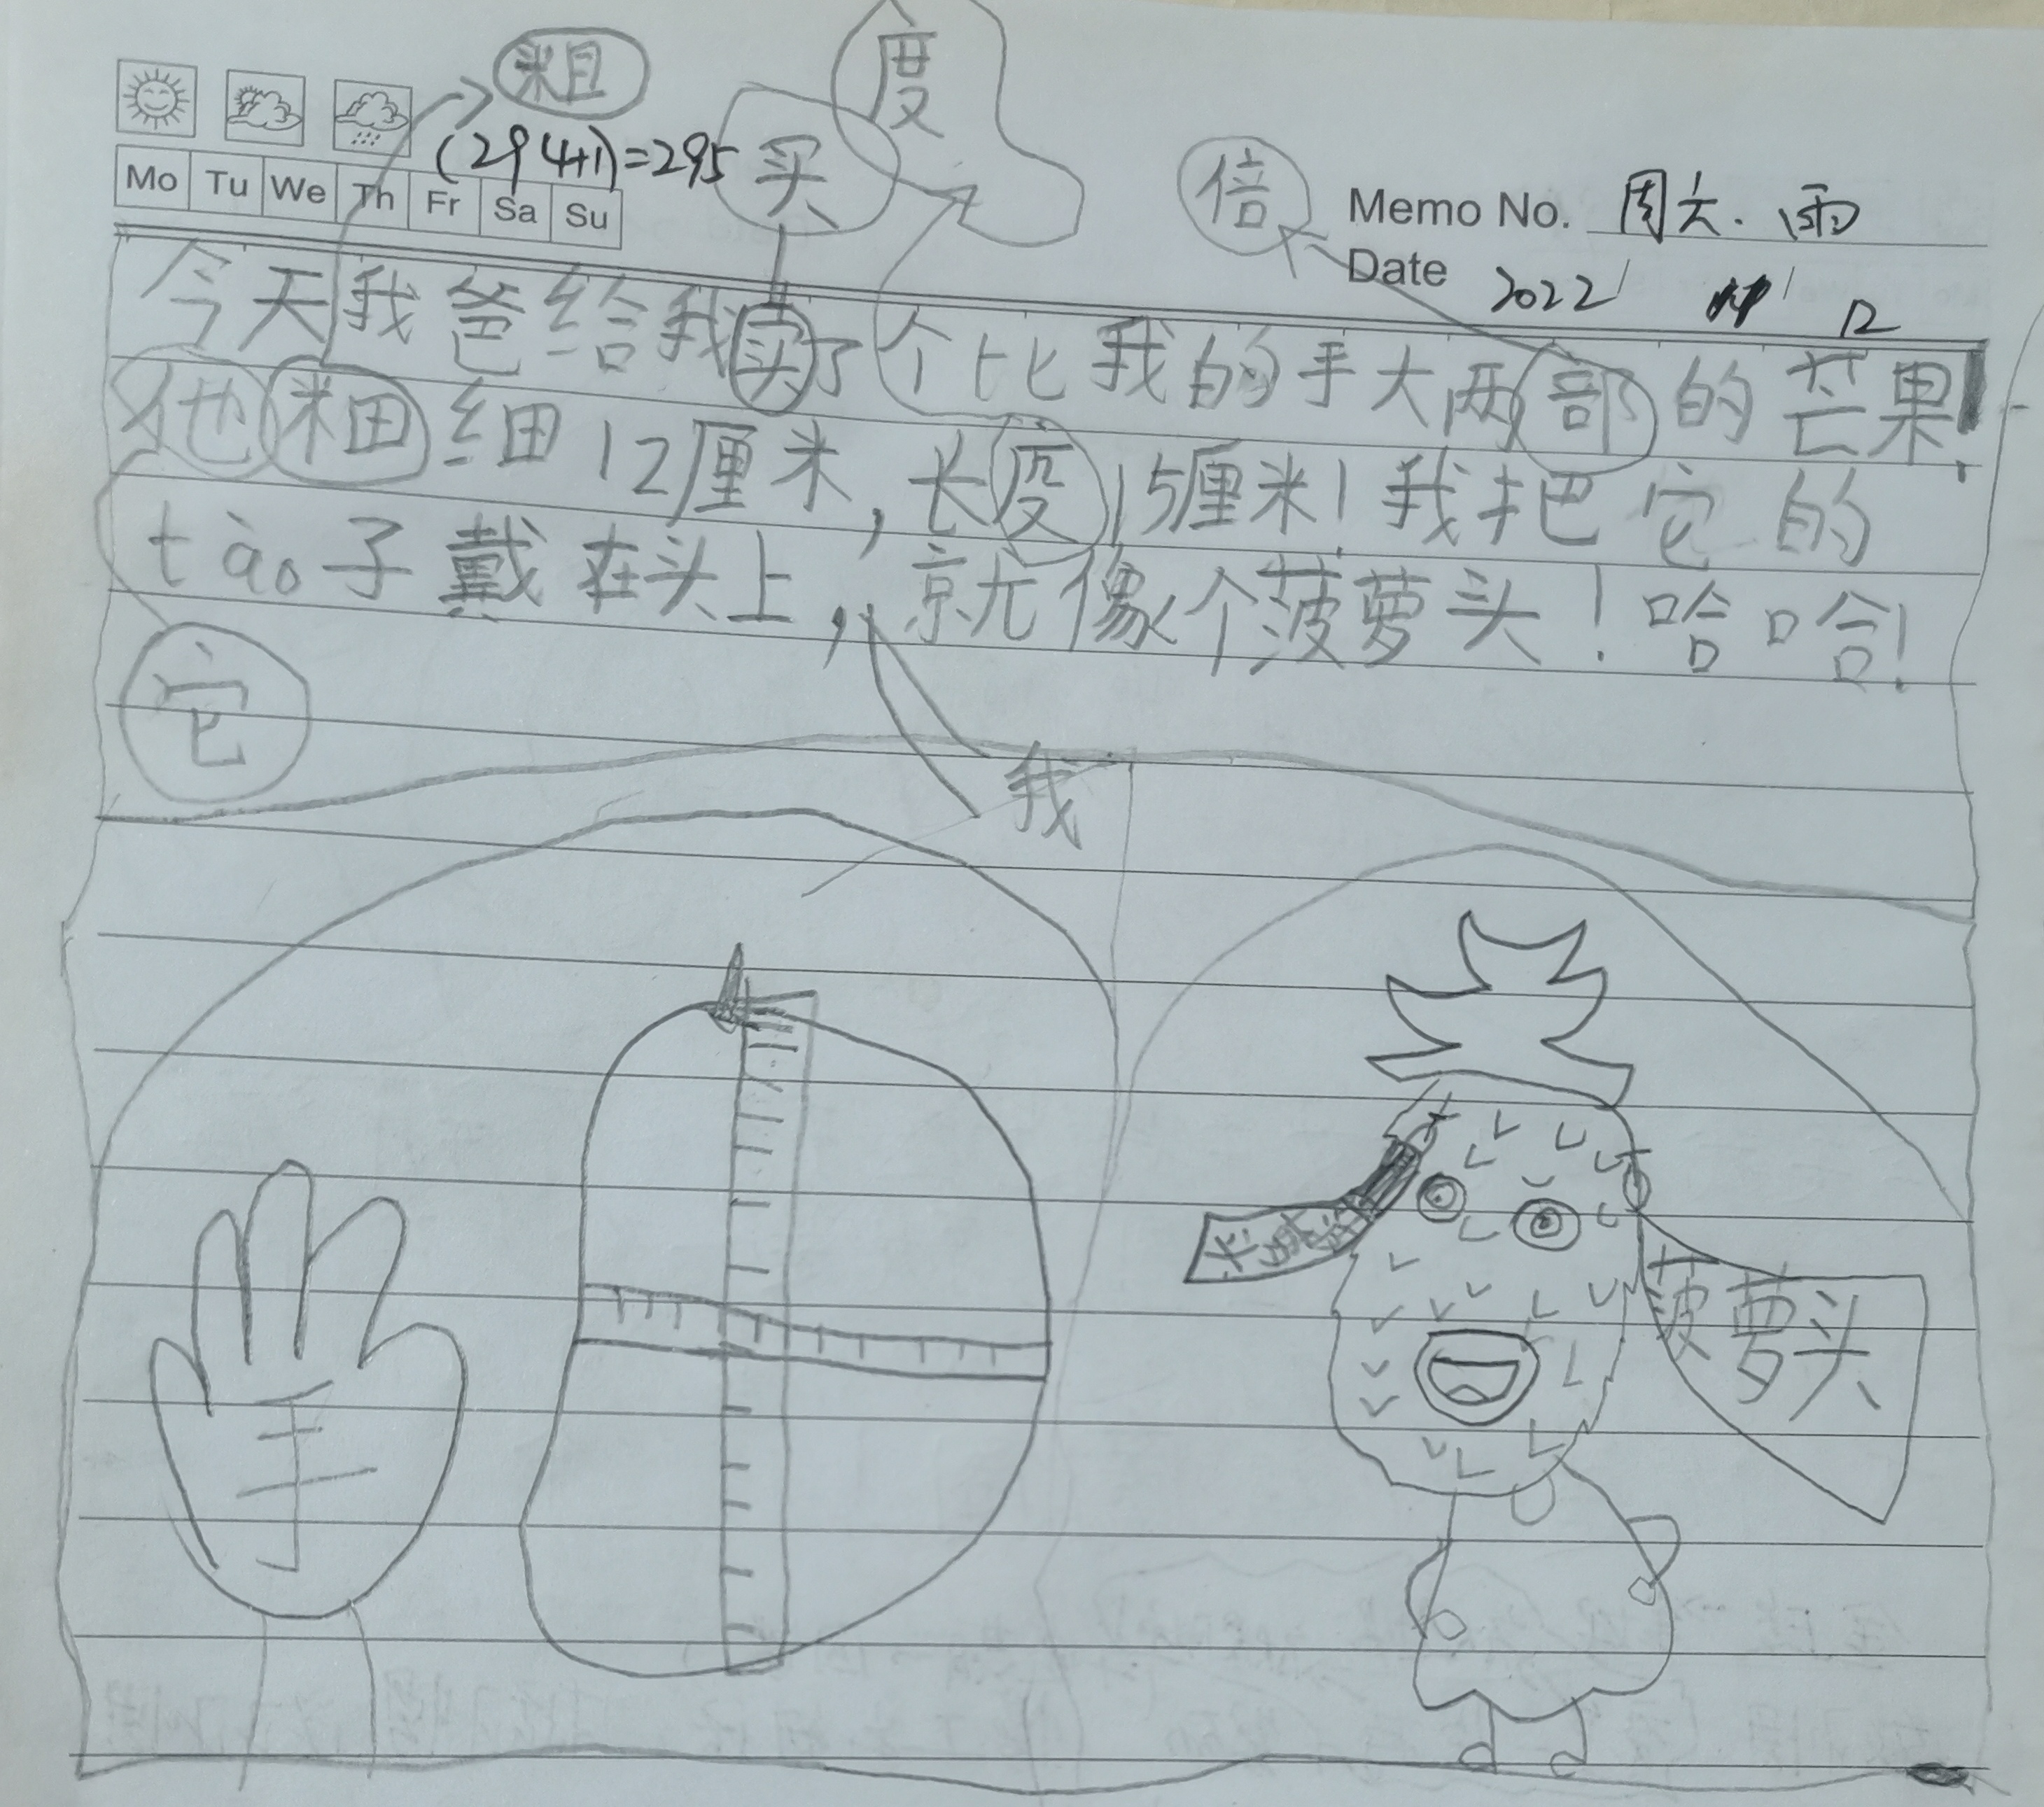 粗
度
(294+1)=295
买
倍
Mo Tu We Th Fr Sa Su
Memo No. 周六.雨
Date 2022/ / 12
今天我爸给我卖了个比我的手大两部的芒果!
他粗细12厘米,长度15厘米!我把它的
tào子戴在头上,就像个菠萝头!哈哈!
它
我
手
菠萝头